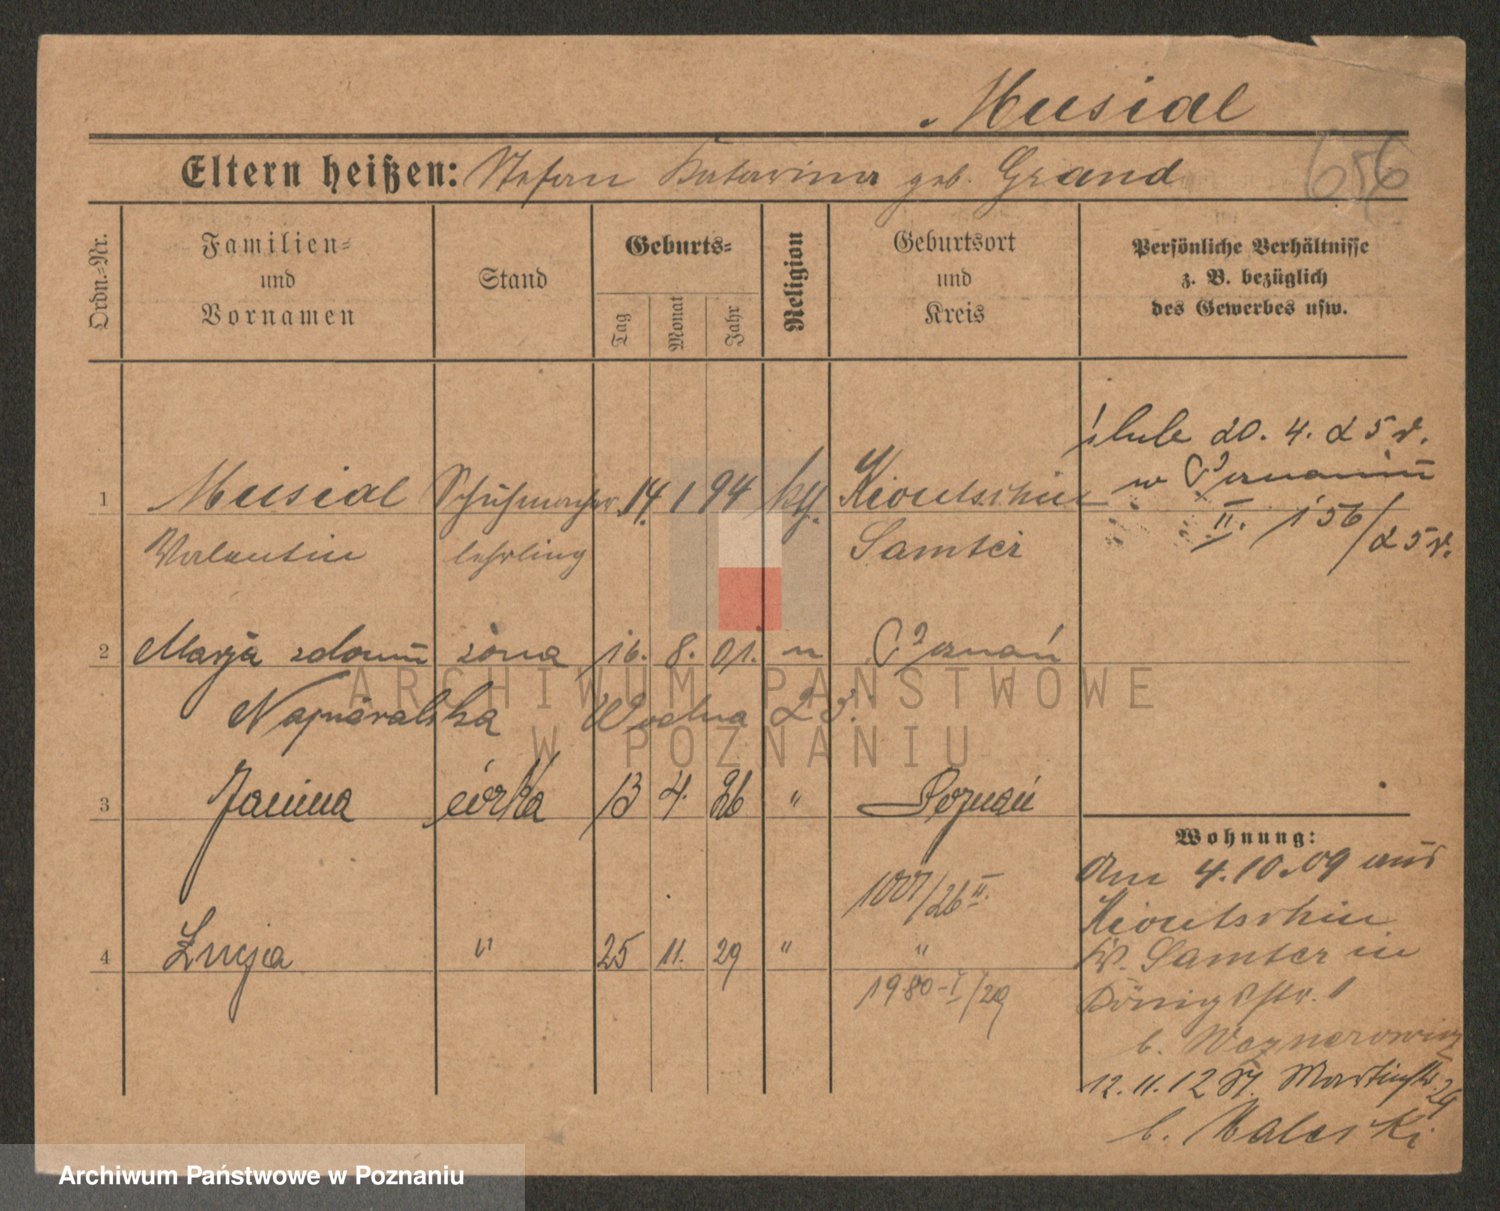 Musial
Eltern heißen: Stefan Katarina geb. Grand
656
Ordn.-Nr.
Familien-
und
Vornamen
Stand
Geburts-
Tag
Monat
Jahr
Religion
Geburtsort
und
Kreis
Persönliche Verhältnisse
z. B. bezüglich
des Gewerbes usw.
ślub 20. 4. 25 r.
w Poznaniu
II. 156/25 r.
1 Musial Schuhmacher 14. 1 94 kth. Kiontschin
Valentin lehrling Samter
2 Marja żona 16. 8. 01. " Poznań
Wodna 25.
3 Janina córka 13 4. 26 " Poznań
1007/26 II.
4 Łucja " 25 11. 29 " "
1980-I/29
Wohnung:
Am 4.10.09 aus
Kiontschin
Kr. Samter in
Königstr. 1
b.
12.11.12 St. Martinstr. 24
b. Walerski
ARCHIWUM PAŃSTWOWE
W POZNANIU
Archiwum Państwowe w Poznaniu